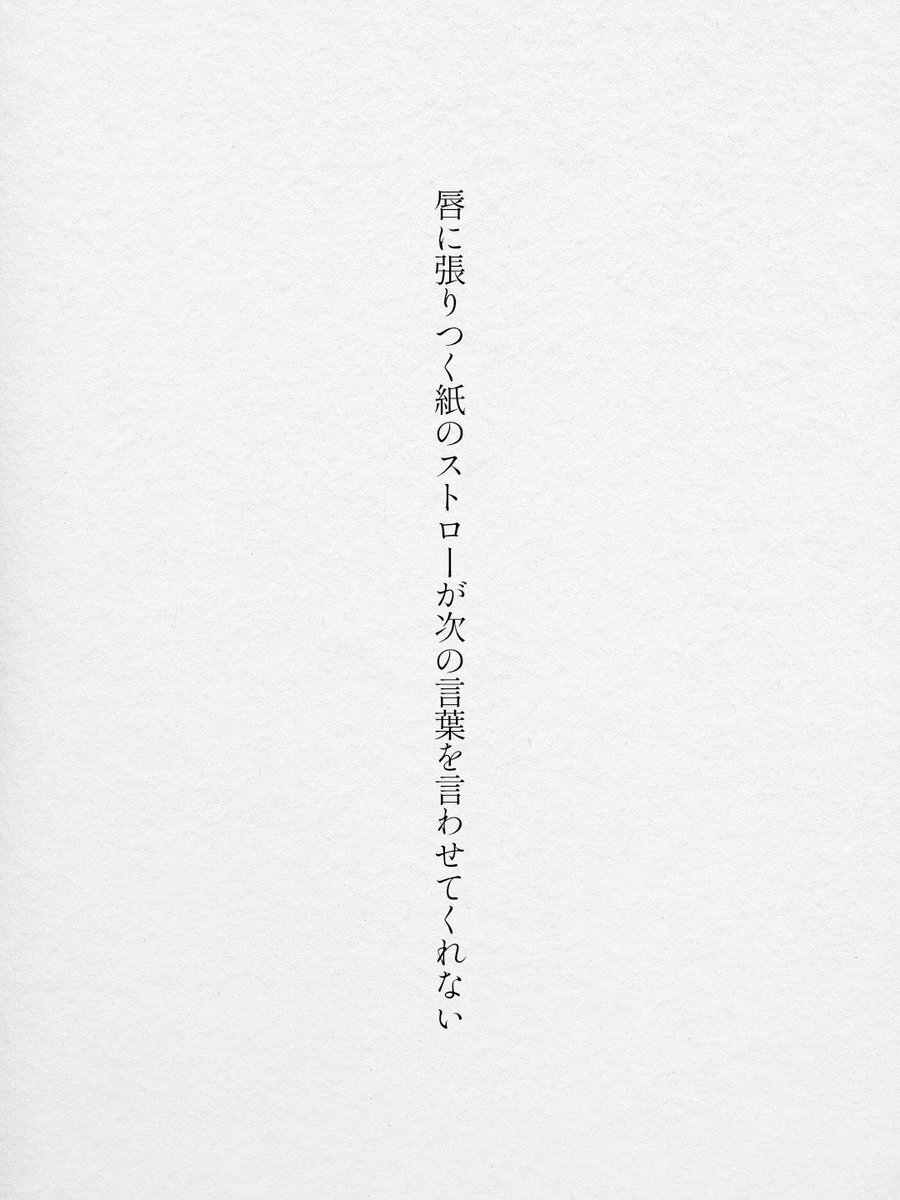 唇に張りつく紙のストローが次の言葉を言わせてくれない